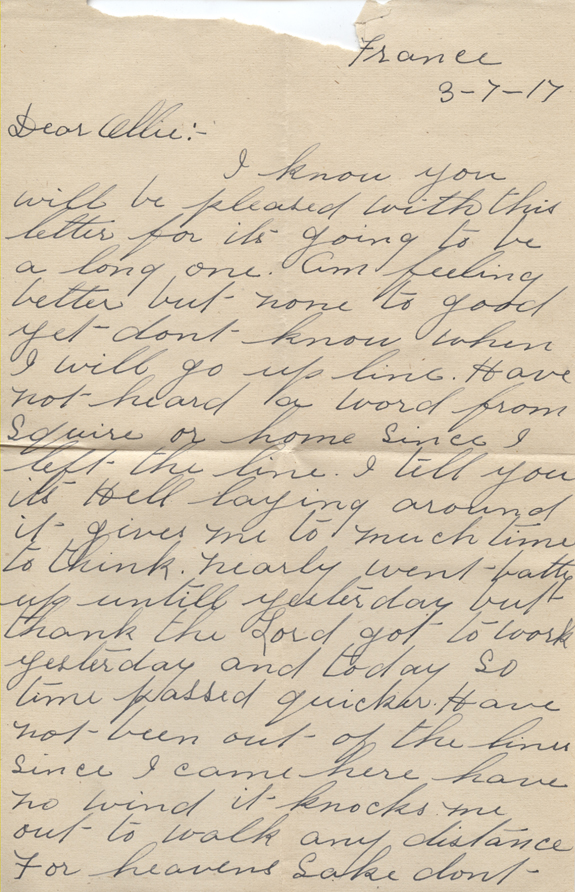 France
3-7-17
Dear Ollie:-
I know you
will be pleased with this
letter for its going to be
a long one. Am feeling
better but none to good
yet dont know when
I will go up line. Have
not heard a word from
Squire or home since I
left the line. I tell you
its Hell laying around
it gives me to much time
to think. nearly went batty
up untill yesterday but
thank the Lord got to work
yesterday and today so
time passed quicker. Have
not been out of the lines
since I came here have
no wind it knocks me
out to walk any distance
For heavens Sake dont